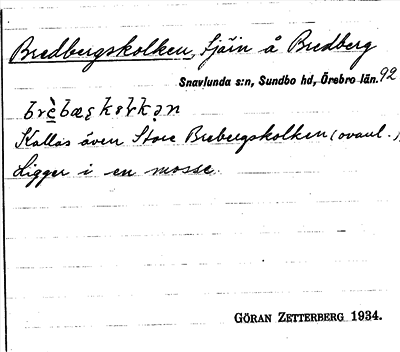 Bredbergskolken, Sjön å Bredberg
Snavlunda s:n, Sundbo hd, Örebro län. 92
Kallas även Store Brebergskolken (ovanl.)
Ligger i en mosse.
GÖRAN ZETTERBERG 1934.